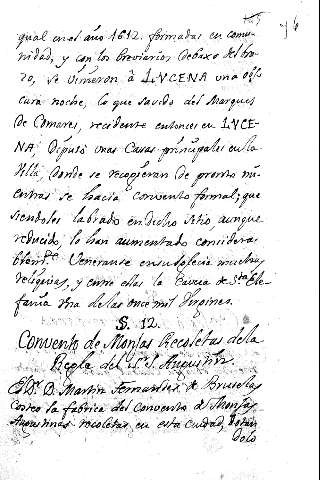 76
qual en el año 1612. formadas en comu-
nidad, y con los breviarios debaxo del bra-
zo, se vinieron à LUCENA una obs-
cura noche, lo que savido del Marques
de Comares, recidente entonces en LUCE-
NA, dispuso unas Casas principales en la
Villa, donde se recogieran de pronto mi-
entras se hacia convento formal; que
siendoles labrado en dicho sitio aunque
reducido, lo han aumentado considera-
blemte. Veneranse en su Yglecia muchas
reliquias, y entre ellas la Cavesa de Sta. Ele-
fania Una de las once mil Virgines.
§. 12.
Convento de Monjas Recoletas de la
Regla del S. S. Augustin.
El Sr. D. Martin Fernandez de Bruselas
costeo la fabrica del Convento de Monjas
Augustinas recoletas en esta ciudad, dotan
dolo